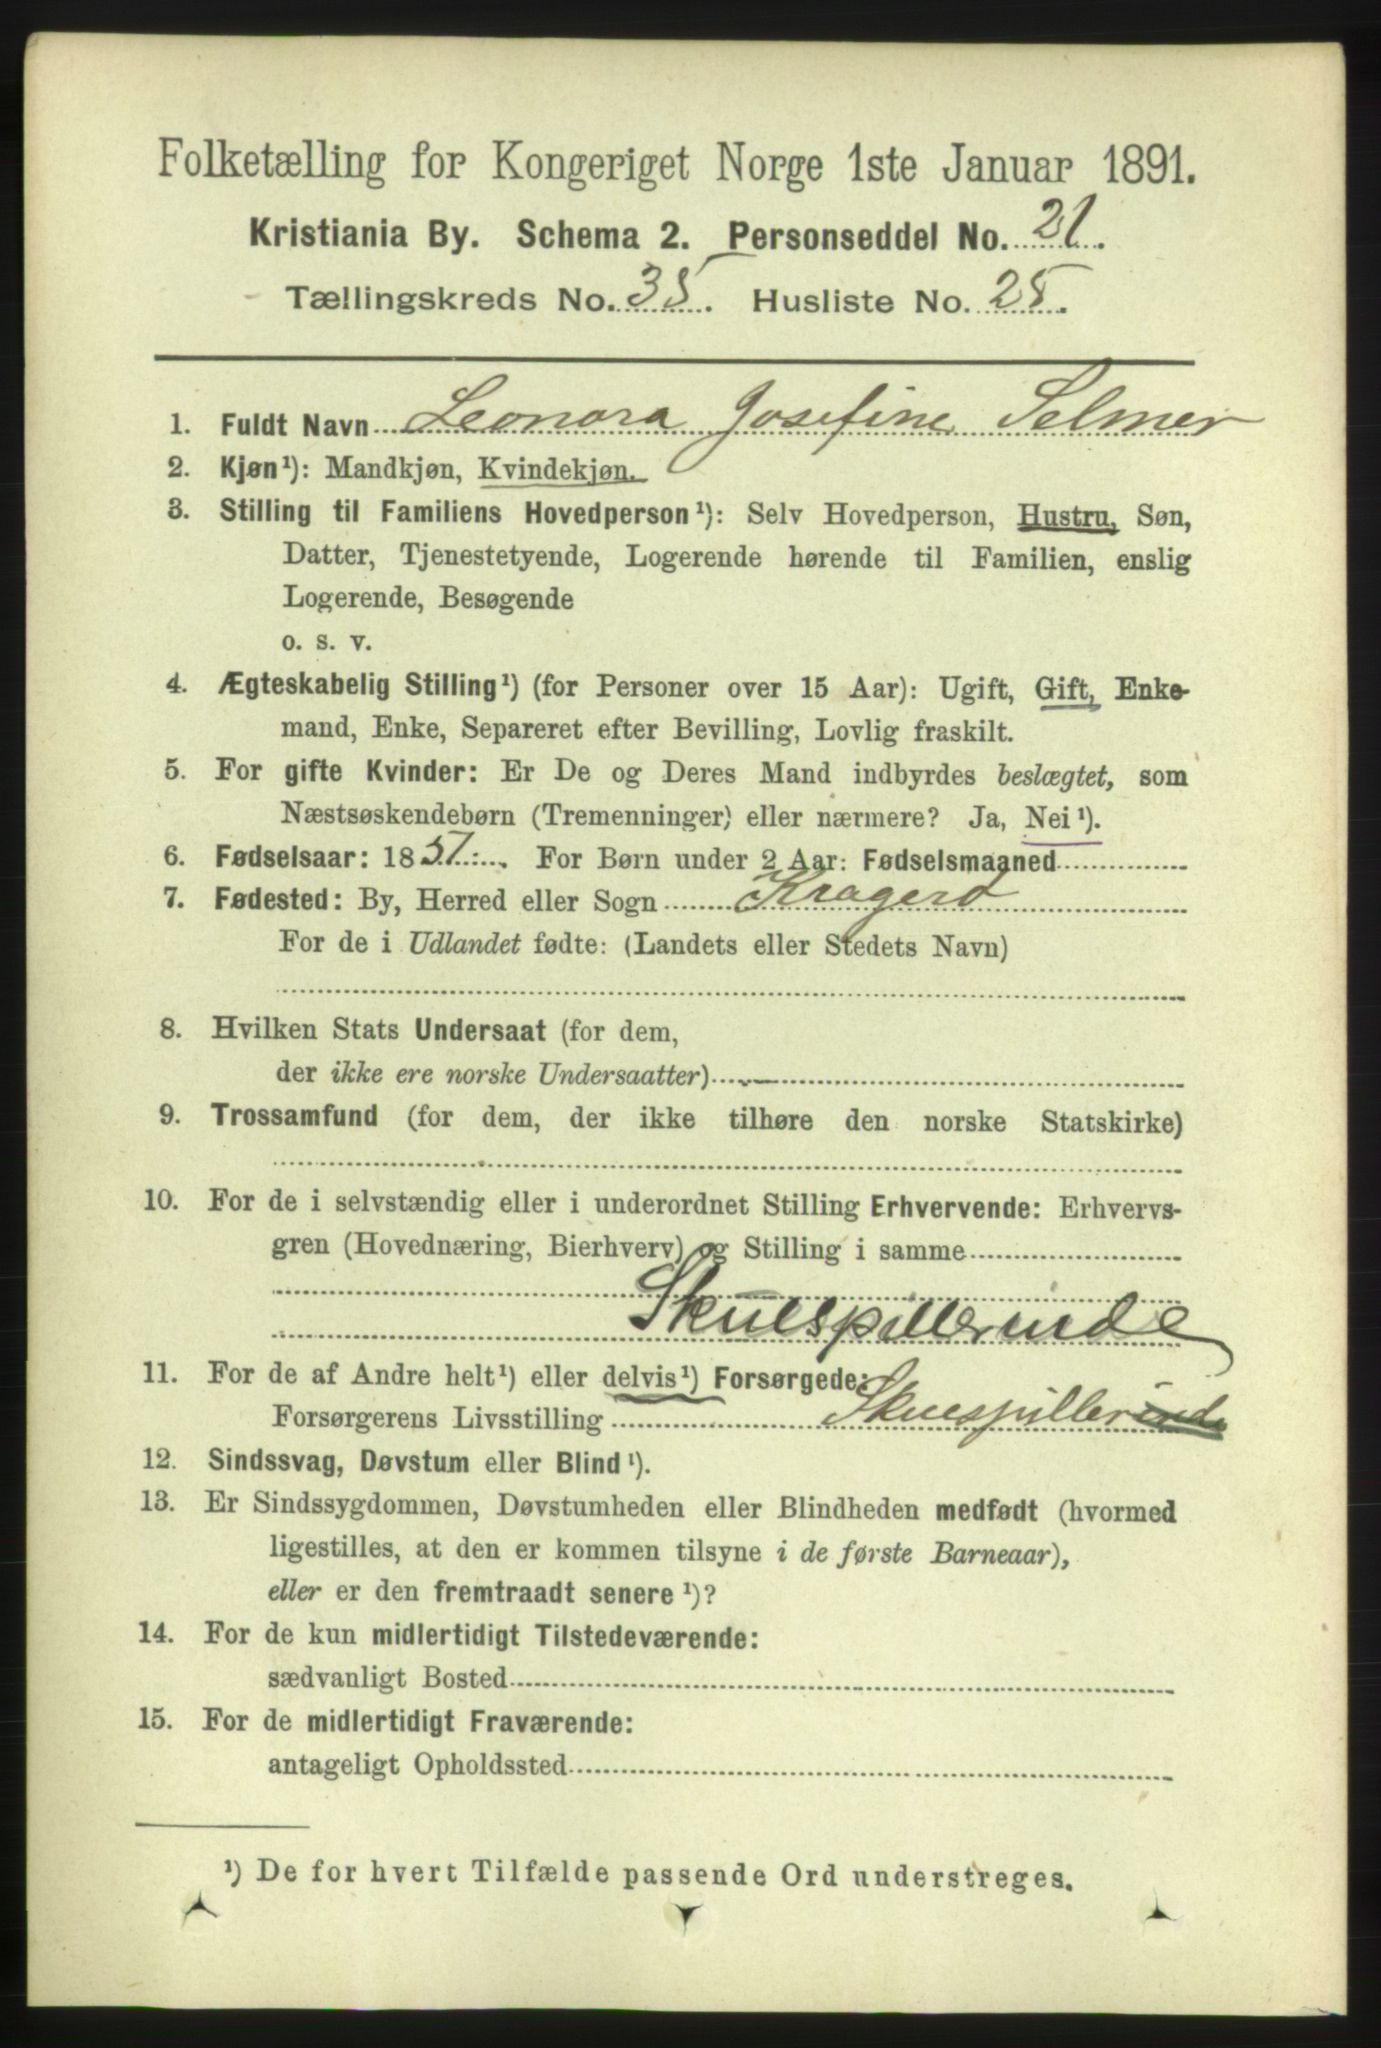 Folketælling for Kongeriget Norge 1ste Januar 1891.
Kristiania By. Schema 2. Personseddel No. 21.
Tællingskreds No. 35. Husliste No. 25.
1. Fuldt Navn Leonora Josefine Selmer
2. Kjøn¹): Mandkjøn, Kvindekjøn.
3. Stilling til Familiens Hovedperson¹): Selv Hovedperson, Hustru, Søn,
Datter, Tjenestetyende, Logerende hørende til Familien, enslig
Logerende, Besøgende
o. s. v.
4. Ægteskabelig Stilling¹) (for Personer over 15 Aar): Ugift, Gift, Enke-
mand, Enke, Separeret efter Bevilling, Lovlig fraskilt.
5. For gifte Kvinder: Er De og Deres Mand indbyrdes beslægtet, som
Næstsøskendebørn (Tremenninger) eller nærmere? Ja, Nei¹).
6. Fødselsaar: 1857. For Børn under 2 Aar: Fødselsmaaned
7. Fødested: By, Herred eller Sogn Kragerø
For de i Udlandet fødte: (Landets eller Stedets Navn)
8. Hvilken Stats Undersaat (for dem,
der ikke ere norske Undersaatter)
9. Trossamfund (for dem, der ikke tilhøre den norske Statskirke)
10. For de i selvstændig eller i underordnet Stilling Erhvervende: Erhvervs-
gren (Hovednæring, Bierhverv) og Stilling i samme
Skuespillerinde
11. For de af Andre helt¹) eller delvis¹) Forsørgede:
Forsørgerens Livsstilling Skuespillerinde
12. Sindssvag, Døvstum eller Blind¹).
13. Er Sindssygdommen, Døvstumheden eller Blindheden medfødt (hvormed
ligestilles, at den er kommen tilsyne i de første Barneaar),
eller er den fremtraadt senere¹)?
14. For de kun midlertidigt Tilstedeværende:
sædvanligt Bosted
15. For de midlertidigt Fraværende:
antageligt Opholdssted
¹) De for hvert Tilfælde passende Ord understreges.